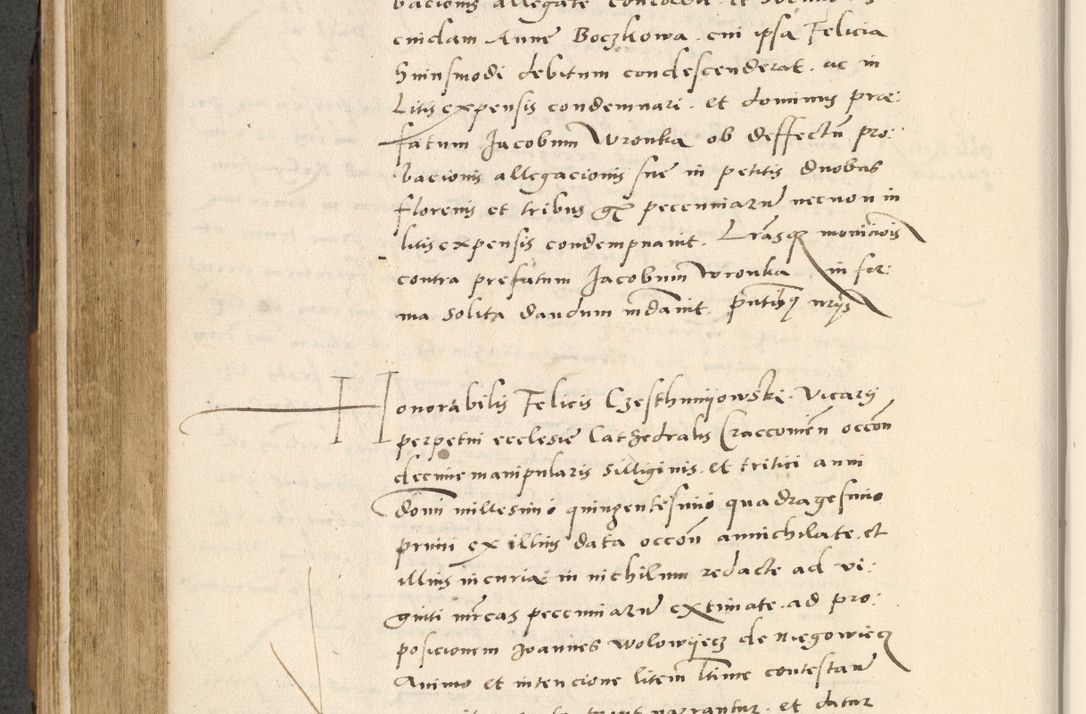 bacionis allegate
cuidam Anne Boczkowa. cui ipsa Felicia
huiusmodi debitum condescenderat. ac in
Litis expensis condemnari. et dominus præ:
fatum Jacobum Wronka ob deffectũ pro:
bacionis allegacionis sue in petitis duobus
florenis et tribus gr pecuniarũ necnon in
litis expensis condempnavit. Lrãsq monicõis
contra prefatum Jacobum Wronka in for:
ma solita dandum mdavit. pñtibq nrijs
Honorabilis Felicis Czesthmijowski. Vicarij
perpetui ecclesie Cathedralis Craccovieñ occõn
decime manipularis siliginis. et tritici anni
dom̃ millesimi quingentesimi quadragesimo
primi ex illius data occoñ annichilate. et
illius in curia in nichilum redacte ad vi:
ginti mr̃cas pecuniarũ extimate. ad pro:
posicionem Joannes Wolowijecz de Niegowiecz
Animo et intencione litem ltime contestañ
narrantur. et datur